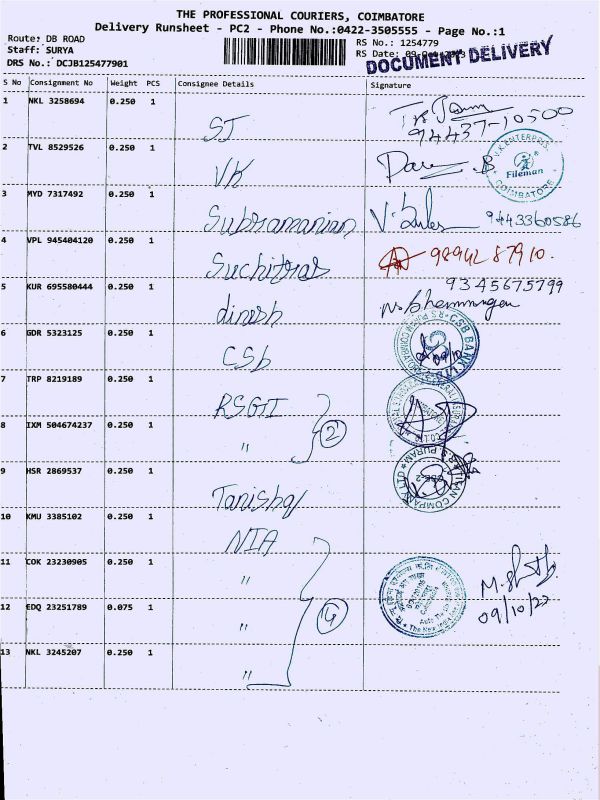 THE PROFESSIONAL COURIERS, COIMBATORE
Delivery Runsheet - PC2 - Phone No.:0422-3505555 - Page No.:1
Route: DB ROAD
Staff: SURYA
DRS No.: DCJB125477901
RS No.: 1254779
RS Date:
DOCUMENT DELIVERY
S No Consignment No Weight PCS Consignee Details Signature
1 NKL 3258694 0.250 1 ST
94437-10500
2 TVL 8529526 0.250 1 VK
B
Fileman
COIMBATORE
3 MYD 7317492 0.250 1 Subramanian 9443360586
4 VPL 945404120 0.250 1 Suchitras 98942 87910.
5 KUR 695580444 0.250 1 dinesh 9345675799
6 GDR 5323125 0.250 1 CSb
CSB BANK
7 TRP 8219189 0.250 1 RSGII
8 IXM 504674237 0.250 1 " 2
9 HSR 2869537 0.250 1 Tanishq
10 KMU 3385102 0.250 1 NIA
11 COK 23230905 0.250 1 "
12 EDQ 23251789 0.075 1 " 4
09/10/23
13 NKL 3245207 0.250 1 "